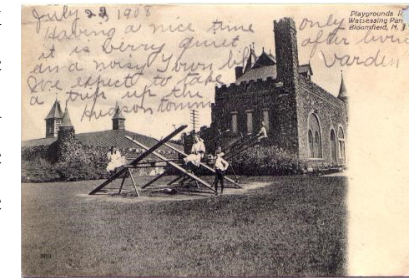 July 22 1908
Having a nice time only
it is very quiet after living
in a noisy Town like
We expect to take
a trip up the
Hudson tomw
Playgrounds in
Watsessing Par
Bloomfield, N. J